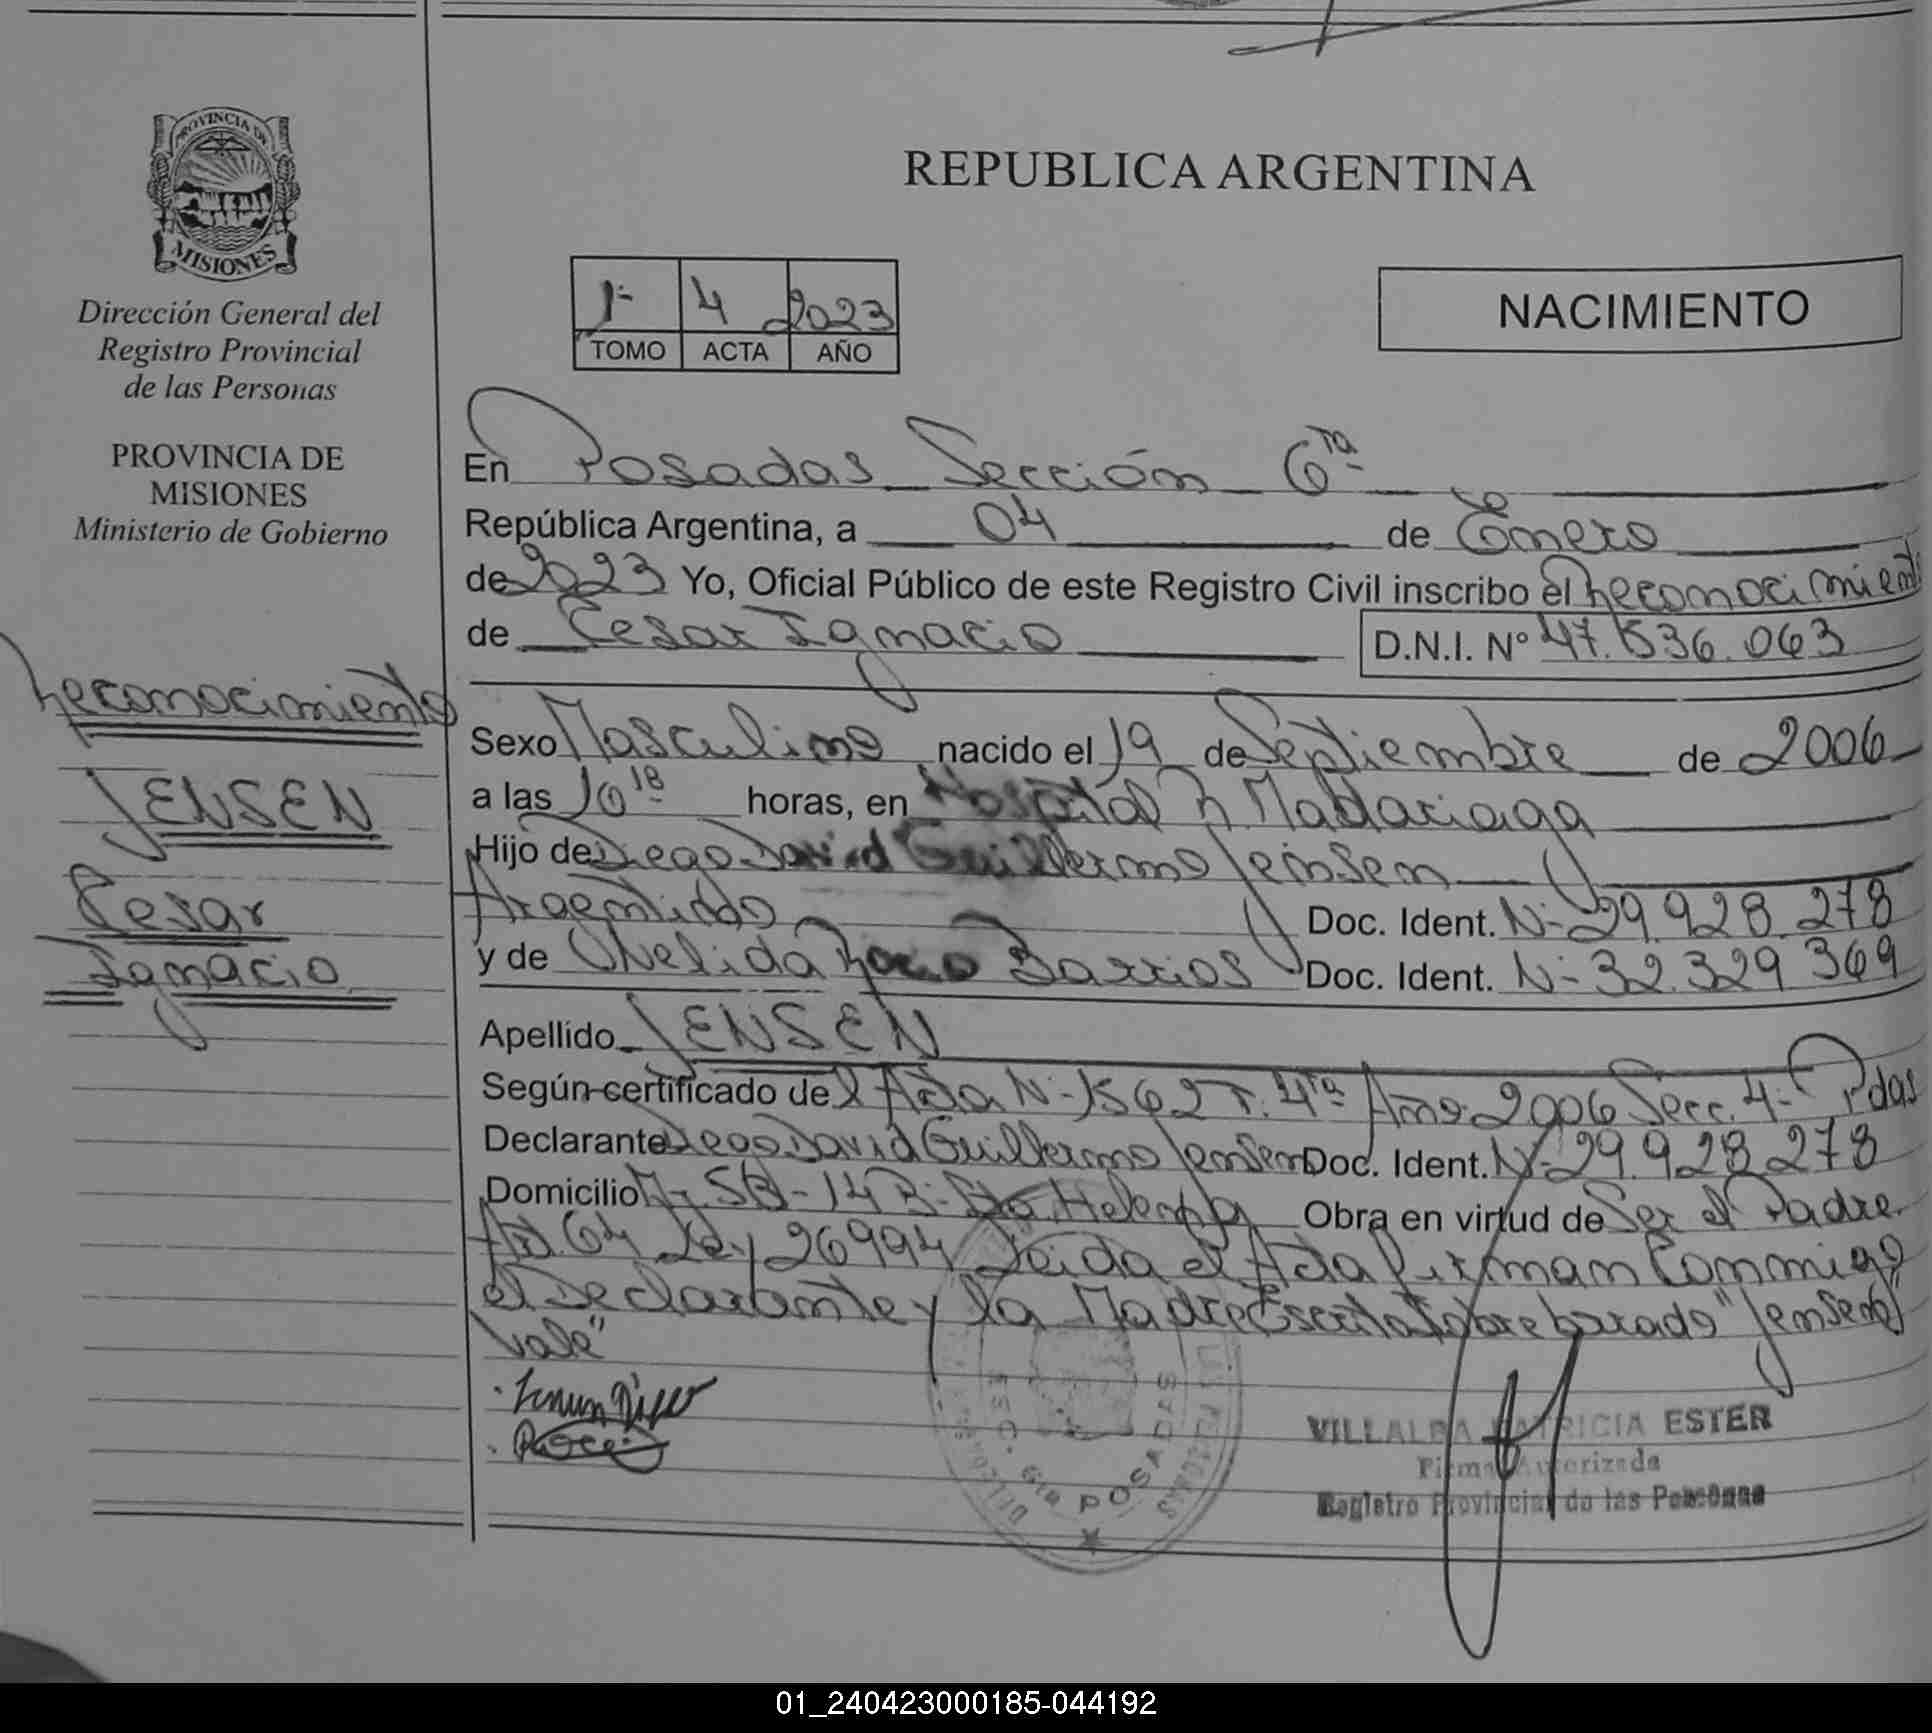 PROVINCIA DE
MISIONES
Dirección General del
Registro Provincial
de las Personas
PROVINCIA DE
MISIONES
Ministerio de Gobierno
Reconocimiento
JENSEN
Cesar
Ignacio
REPUBLICA ARGENTINA
1- 4 2023
TOMO ACTA AÑO
NACIMIENTO
En Posadas Sección 6ta
República Argentina, a 04 de Enero
de 2023 Yo, Oficial Público de este Registro Civil inscribo el Reconocimiento
de Cesar Ignacio D.N.I. Nº 47.536.063
Sexo Masculino nacido el 19 de Septiembre de 2006
a las 10 18 horas, en Hospital R Madariaga
Hijo de Diego David Guillermo Jensen
Argentino Doc. Ident. N- 29.928.278
y de Nelida Rocio Barrios Doc. Ident. N- 32.329.369
Apellido JENSEN
Según certificado del Acta N- 1562 T. 4ta Año 2006 Secc. 4- Pdas
Declarante Diego David Guillermo Jensen Doc. Ident. N- 29.928.278
Domicilio Mz 58- 14 B- Sta Helena Obra en virtud de Ser el Padre
Art. 64 Ley 26994 Leida el Acta firman Conmigo
el Declarante y la Madre Escrito Sobre borrado "Jensen"
Vale"
VILLALBA PATRICIA ESTER
Firma Autorizada
Registro Provincial de las Personas
POSADAS
01_240423000185-044192